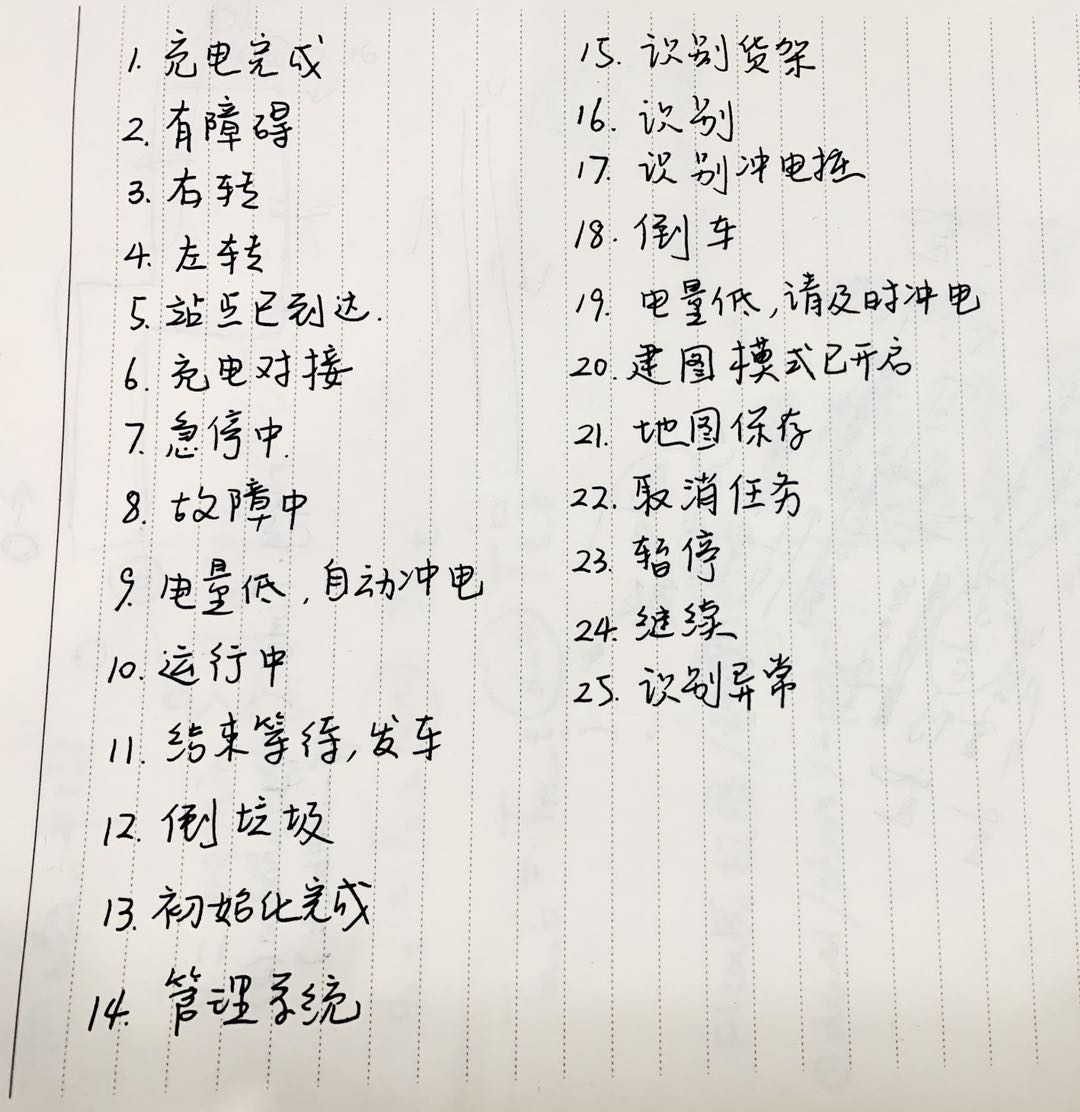 1. 充电完成
2. 有障碍
3. 右转
4. 左转
5. 站点已到达.
6. 充电对接
7. 急停中.
8. 故障中
9. 电量低,自动冲电
10. 运行中
11. 结束等待,发车
12. 倒垃圾
13. 初始化完成
14. 管理系统
15. 识别货架
16. 识别
17. 识别冲电桩
18. 倒车
19. 电量低,请及时冲电
20. 建图模式已开启
21. 地图保存
22. 取消任务
23. 暂停
24. 继续
25. 识别异常